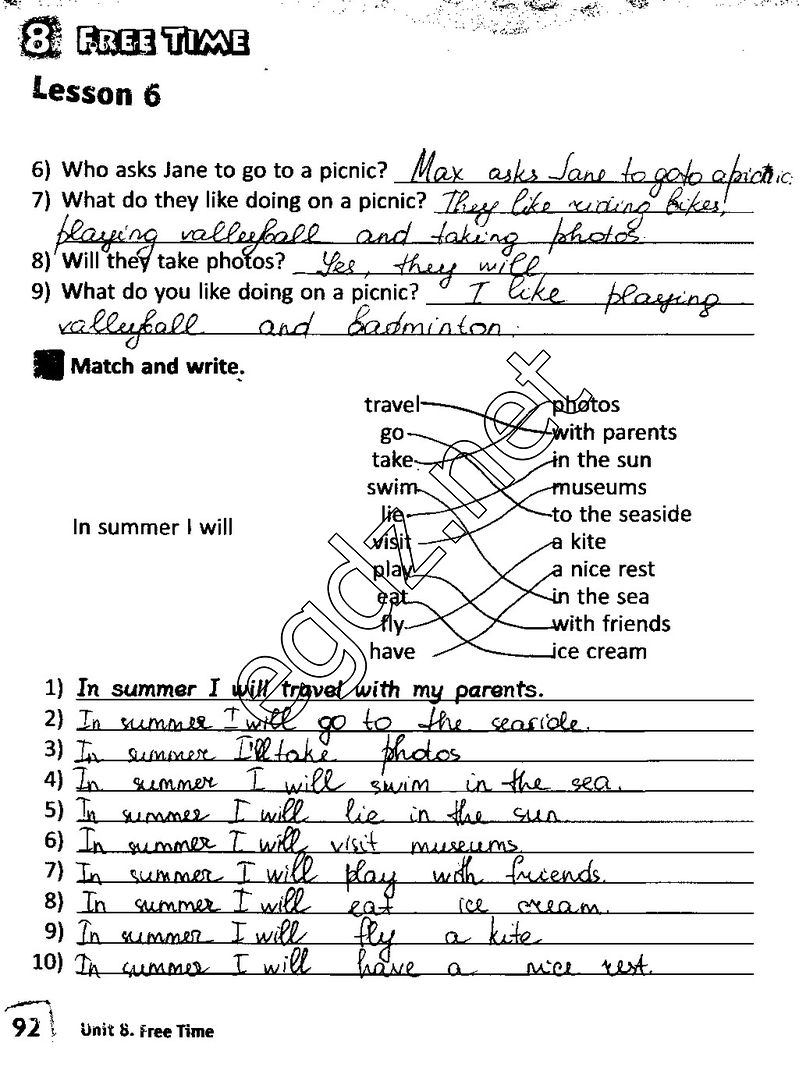 8 FREE TIME
Lesson 6
6) Who asks Jane to go to a picnic? Max asks Jane to go to a picnic.
7) What do they like doing on a picnic? They like riding bikes,
playing valleyball and taking photos.
8) Will they take photos? Yes, they will.
9) What do you like doing on a picnic? I like playing
valleyball and badminton.
Match and write.
travel photos
go with parents
take in the sun
swim museums
lie to the seaside
In summer I will
visit a kite
play a nice rest
eat in the sea
fly with friends
have ice cream
egdz.net
1) In summer I will travel with my parents.
2) In summer I will go to the seaside.
3) In summer I'll take photos
4) In summer I will swim in the sea.
5) In summer I will lie in the sun.
6) In summer I will visit museums.
7) In summer I will play with friends.
8) In summer I will eat ice cream.
9) In summer I will fly a kite
10) In summer I will have a nice rest.
92 Unit 8. Free Time